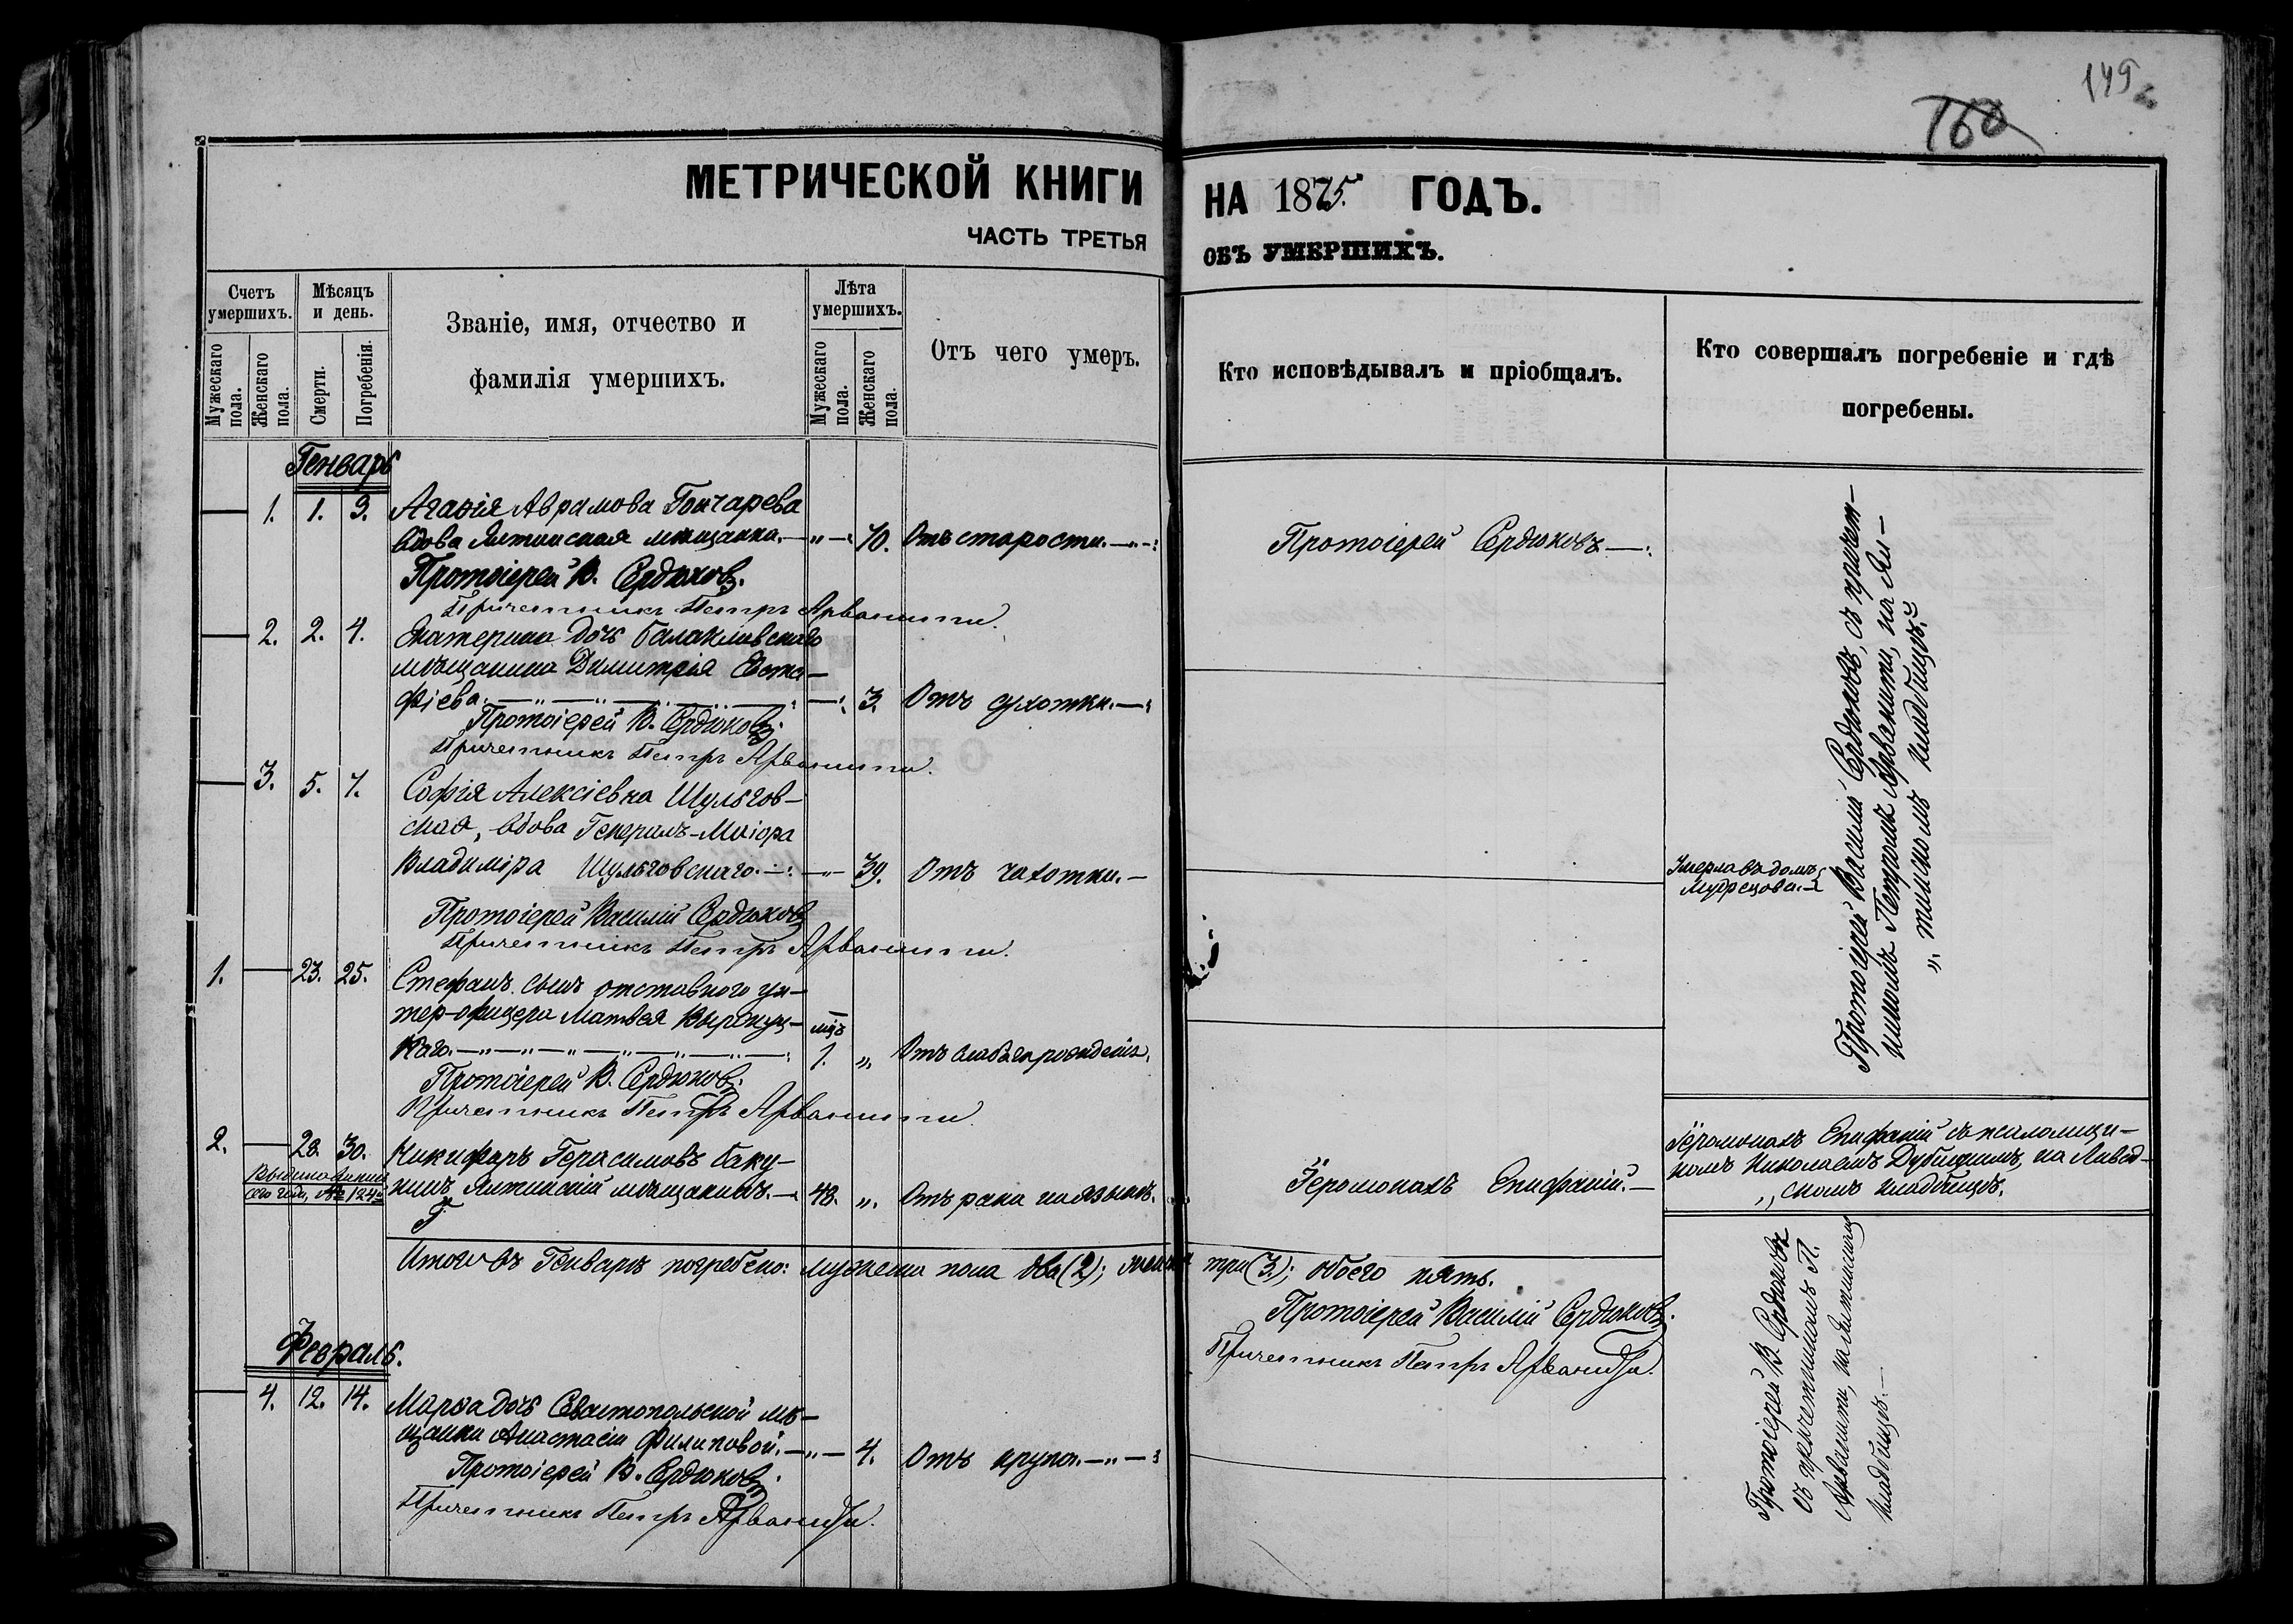 149
160
МЕТРИЧЕСКОЙ КНИГИ
ЧАСТЬ ТРЕТЬЯ
НА 1875. ГОДЪ.
ОБЪ УМЕРШИХЪ.
Счетъ умершихъ.
Мужескаго пола.
Женскаго пола.
Мѣсяцъ и день.
Смерти.
Погребенія.
Званіе, имя, отчество и
фамилія умершихъ.
Лѣта умершихъ.
Мужескаго пола.
Женскаго пола.
Отъ чего умеръ.
Кто исповѣдывалъ и пріобщалъ.
Кто совершалъ погребеніе и гдѣ
погребены.
Генварь
1. 1. 3. Агаѳія Аврамова Гончарева
вдова Ялтинская мѣщанка. 70. Отъ старости. Протоіерей Сердюковъ
Протоіерей В. Сердюковъ.
Причетникъ Петръ Арванити.
2. 2. 4. Екатерина дочь балаклавскаго
мѣщанина Димитрія Евста-
фіева. 3. Отъ сухотки.
Протоіерей В. Сердюковъ.
Причетникъ Петръ Арванити.
3. 5. 7. Софія Алексіевна Шульгов-
ская, вдова Генералъ-Маіора
Владиміра Шульговскаго. 39. Отъ чахотки.
Умерла въ домѣ
Мудрецова.
Протоіерей Василій Сердюковъ
Причетникъ Петръ Арванити.
1. 23. 25. Стефанъ сынъ отставного ун-
тер-офицера Матвея
каго. 1. „ Отъ
Протоіерей В. Сердюковъ.
Причетникъ Петръ Арванити.
Протоіерей Василій Сердюковъ, съ причет-
никомъ Петромъ Арванити, на Ял-
„ тинскомъ кладбищѣ.
2. 28. 30. Никифоръ Герасимовъ Баку-
нинъ Ялтинскій мѣщанинъ. 48. „. Отъ рака на языкѣ. Іеромонахъ Епифаній.
сего года, № 124
Іеромонахъ Епифаній съ псаломщи-
комъ Николаемъ на Ливад-
„ скомъ кладбищѣ.
Итого въ Генварѣ погребено: мужеска пола два (2); женска три (3.); обоего пять.
Протоіерей Василій Сердюковъ.
Причетникъ Петръ Арванити.
Февраль.
4. 12. 14. Марѳа дочь Севастопольской мѣ-
щанки Анастасіи Филиповой. 4. Отъ крупа.
Протоіерей В. Сердюковъ.
Причетникъ Петръ Арванити.
Протоіерей В. Сердюковъ
съ причетникомъ П.
Арванити, на Ялтинскомъ
кладбищѣ.